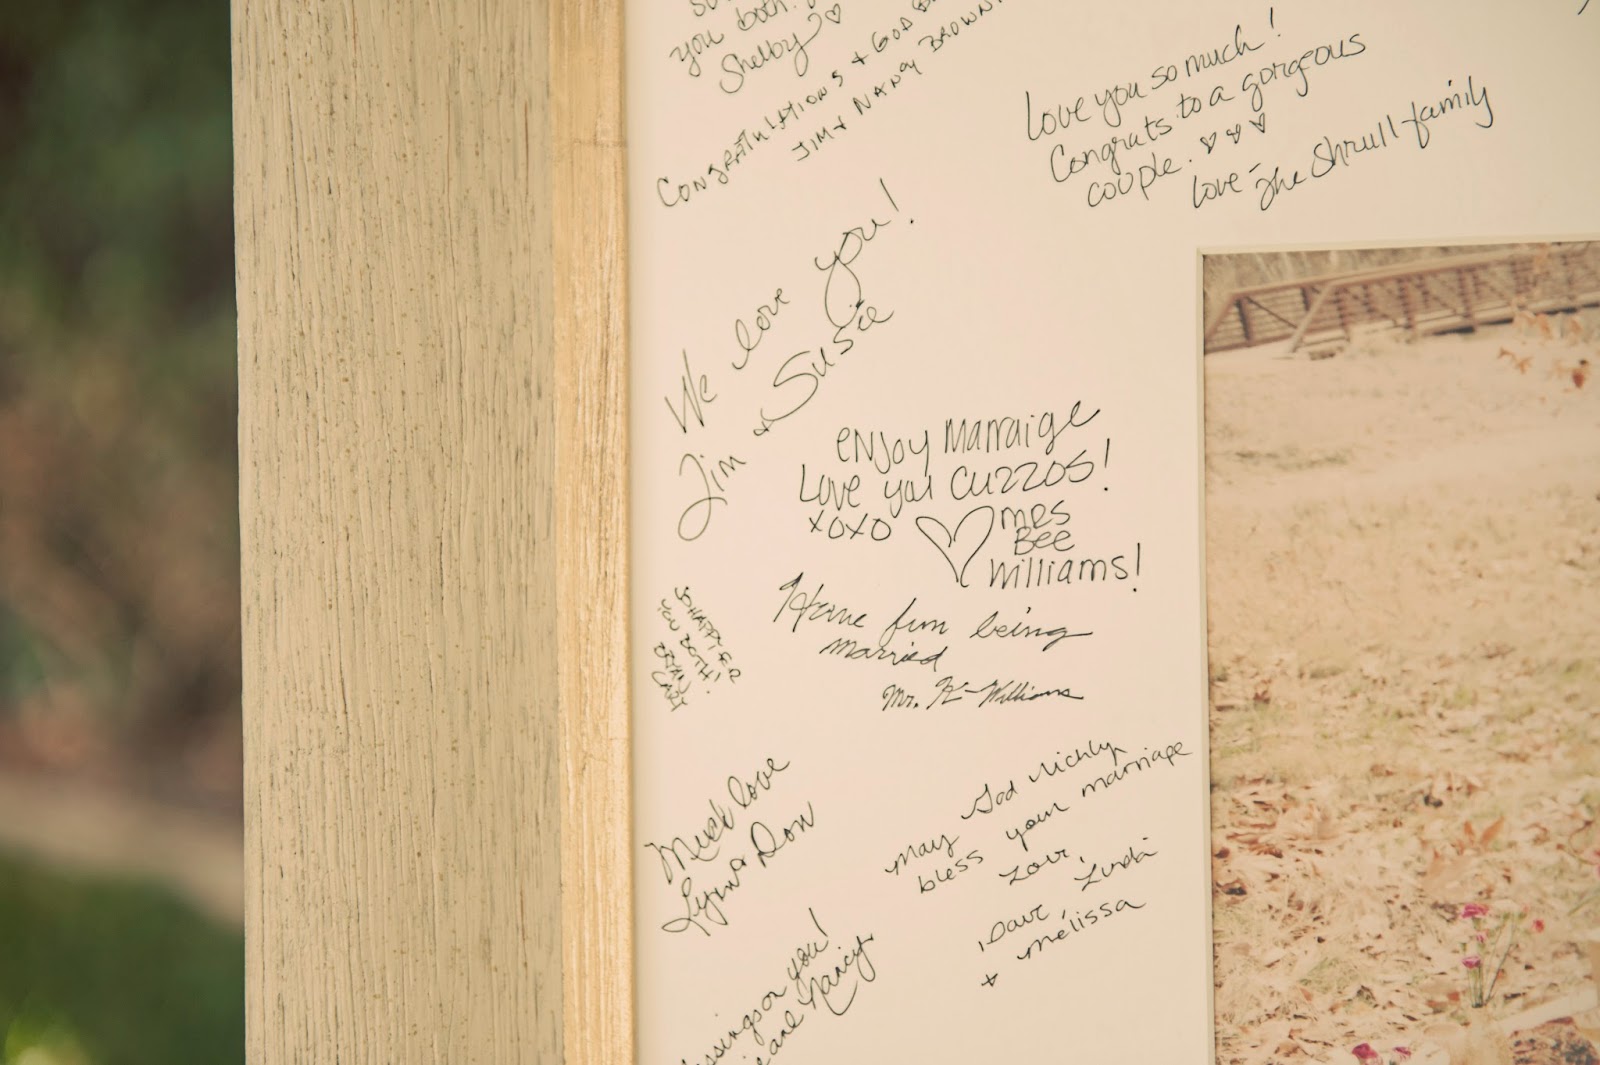 you both!
Shelby
CONGRATULATIONS + GOD
JIM + NANCY BROWN
Love you so much!
Congrats to a gorgeous
couple.
Love - The Shrull family
We love you!
Jim & Susie
ENJOY Marraige
Love you CUZZOS!
XOXO
MRS
BEE
Williams!
Have fun being
married
Mr. K-Williams
SO HAPPY FOR
YOU BOTH!
Much love
Lynn & Don
May God richly
bless your marriage
Love,
Dave Linda
+ Mélissa
on you!
and Nancy